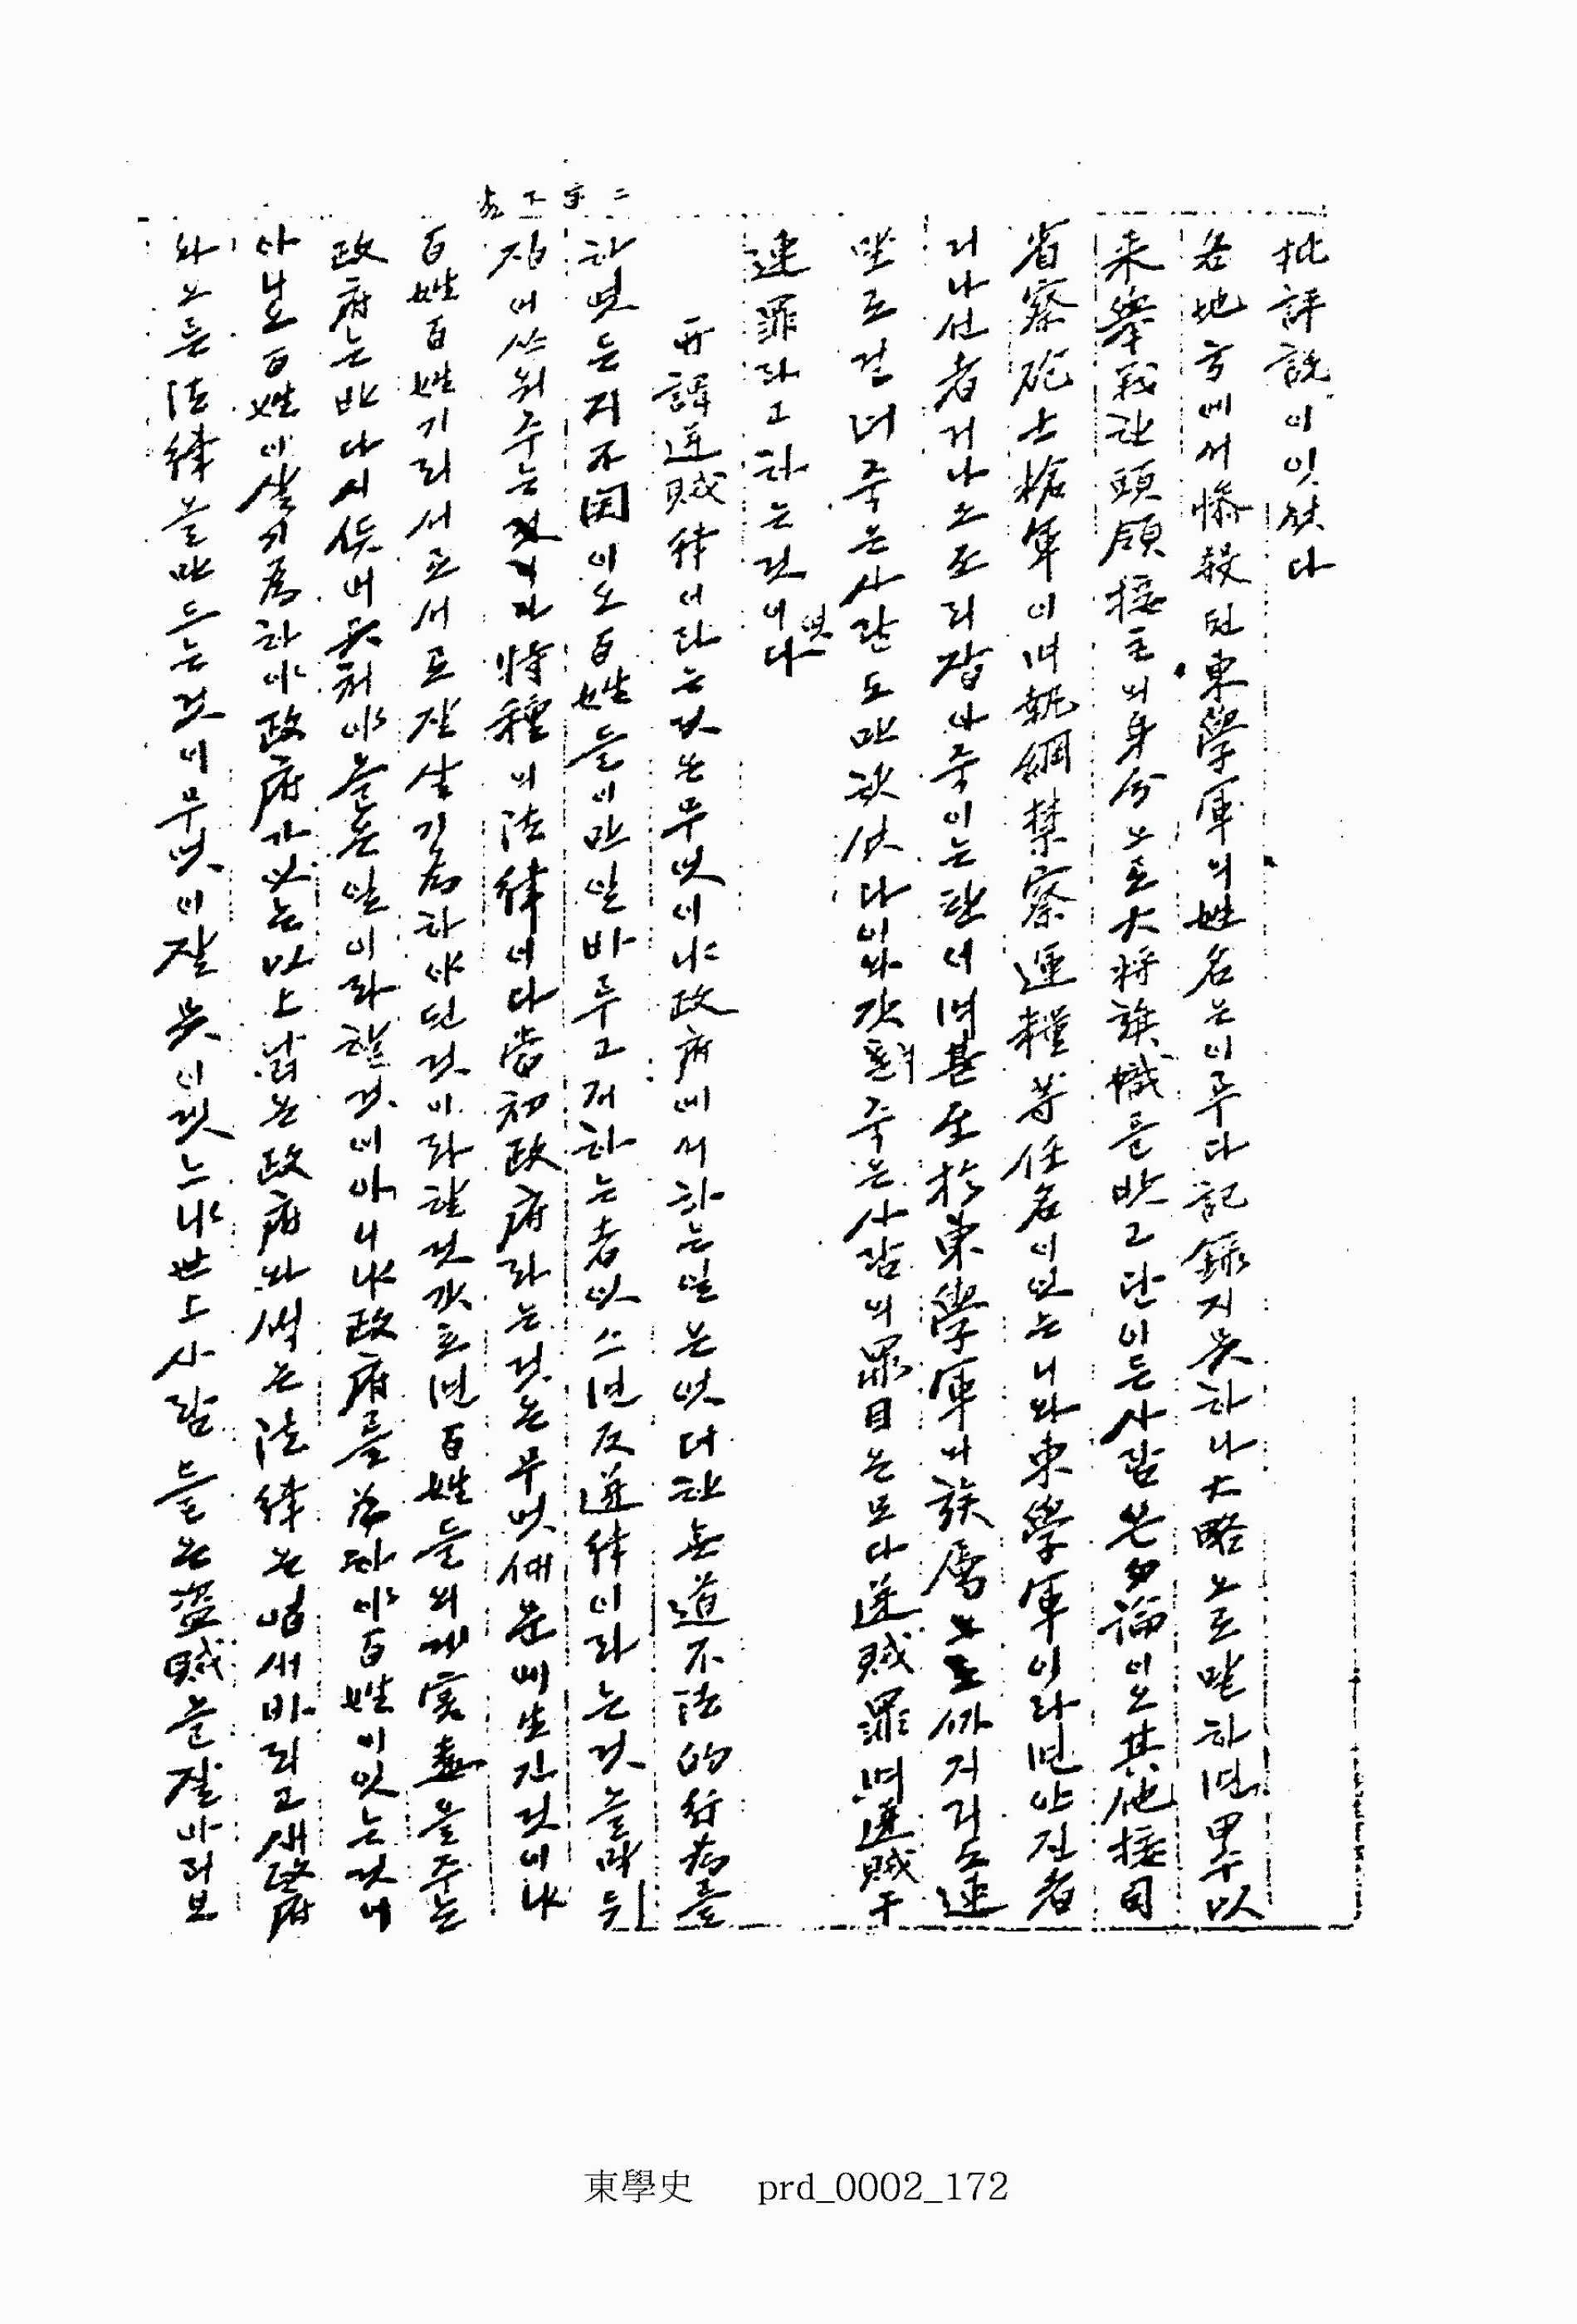 批評說이잇섯다
各地方에서慘殺된東學軍의姓名은이루다記錄지못하나大略으로말하면甲午以
来擧義한頭領接主의身分으로大将旗幟를밧고단이든사람은勿論이오其他接司
省察砲士槍軍이며執綱禁察運糧等任名이잇는니와東學軍이라면안진者
리나선者거나오로리잡아죽이는판이며甚至於東學軍의族屬으로까지라도連
坐로걸녀죽은사람도만핫섯다이와갓치죽은사람의罪目은모다逆賊罪며逆賊干
連罪라고하는것이엿다
所謂逆賊律이라는것은무엇이냐政府에서하는일은엇더한無道不法的行為를
하엿는지不関이오百姓들이만일바루고저하는者잇스면反逆律이라는것을마두
二字下去
집어씨워주는것기라特種의法律이다當初政府라는것은무엇때문에생긴것이냐
百姓百姓기리서로서로잘살기為하야된것이라할것갓흐면百姓들의게害毒을주는
政府는바다시업서못처야올은일이라할것이아니냐政府를為하야百姓이잇는것이
아니오百姓이살기為하야政府가잇는以上낡은政府와썩은法律은업새바리고새政府
와올흔法律을만드는것이무엇이잘못이겟느냐世上사람들은盜賊을잘아러보
東學史 prd_0002_172